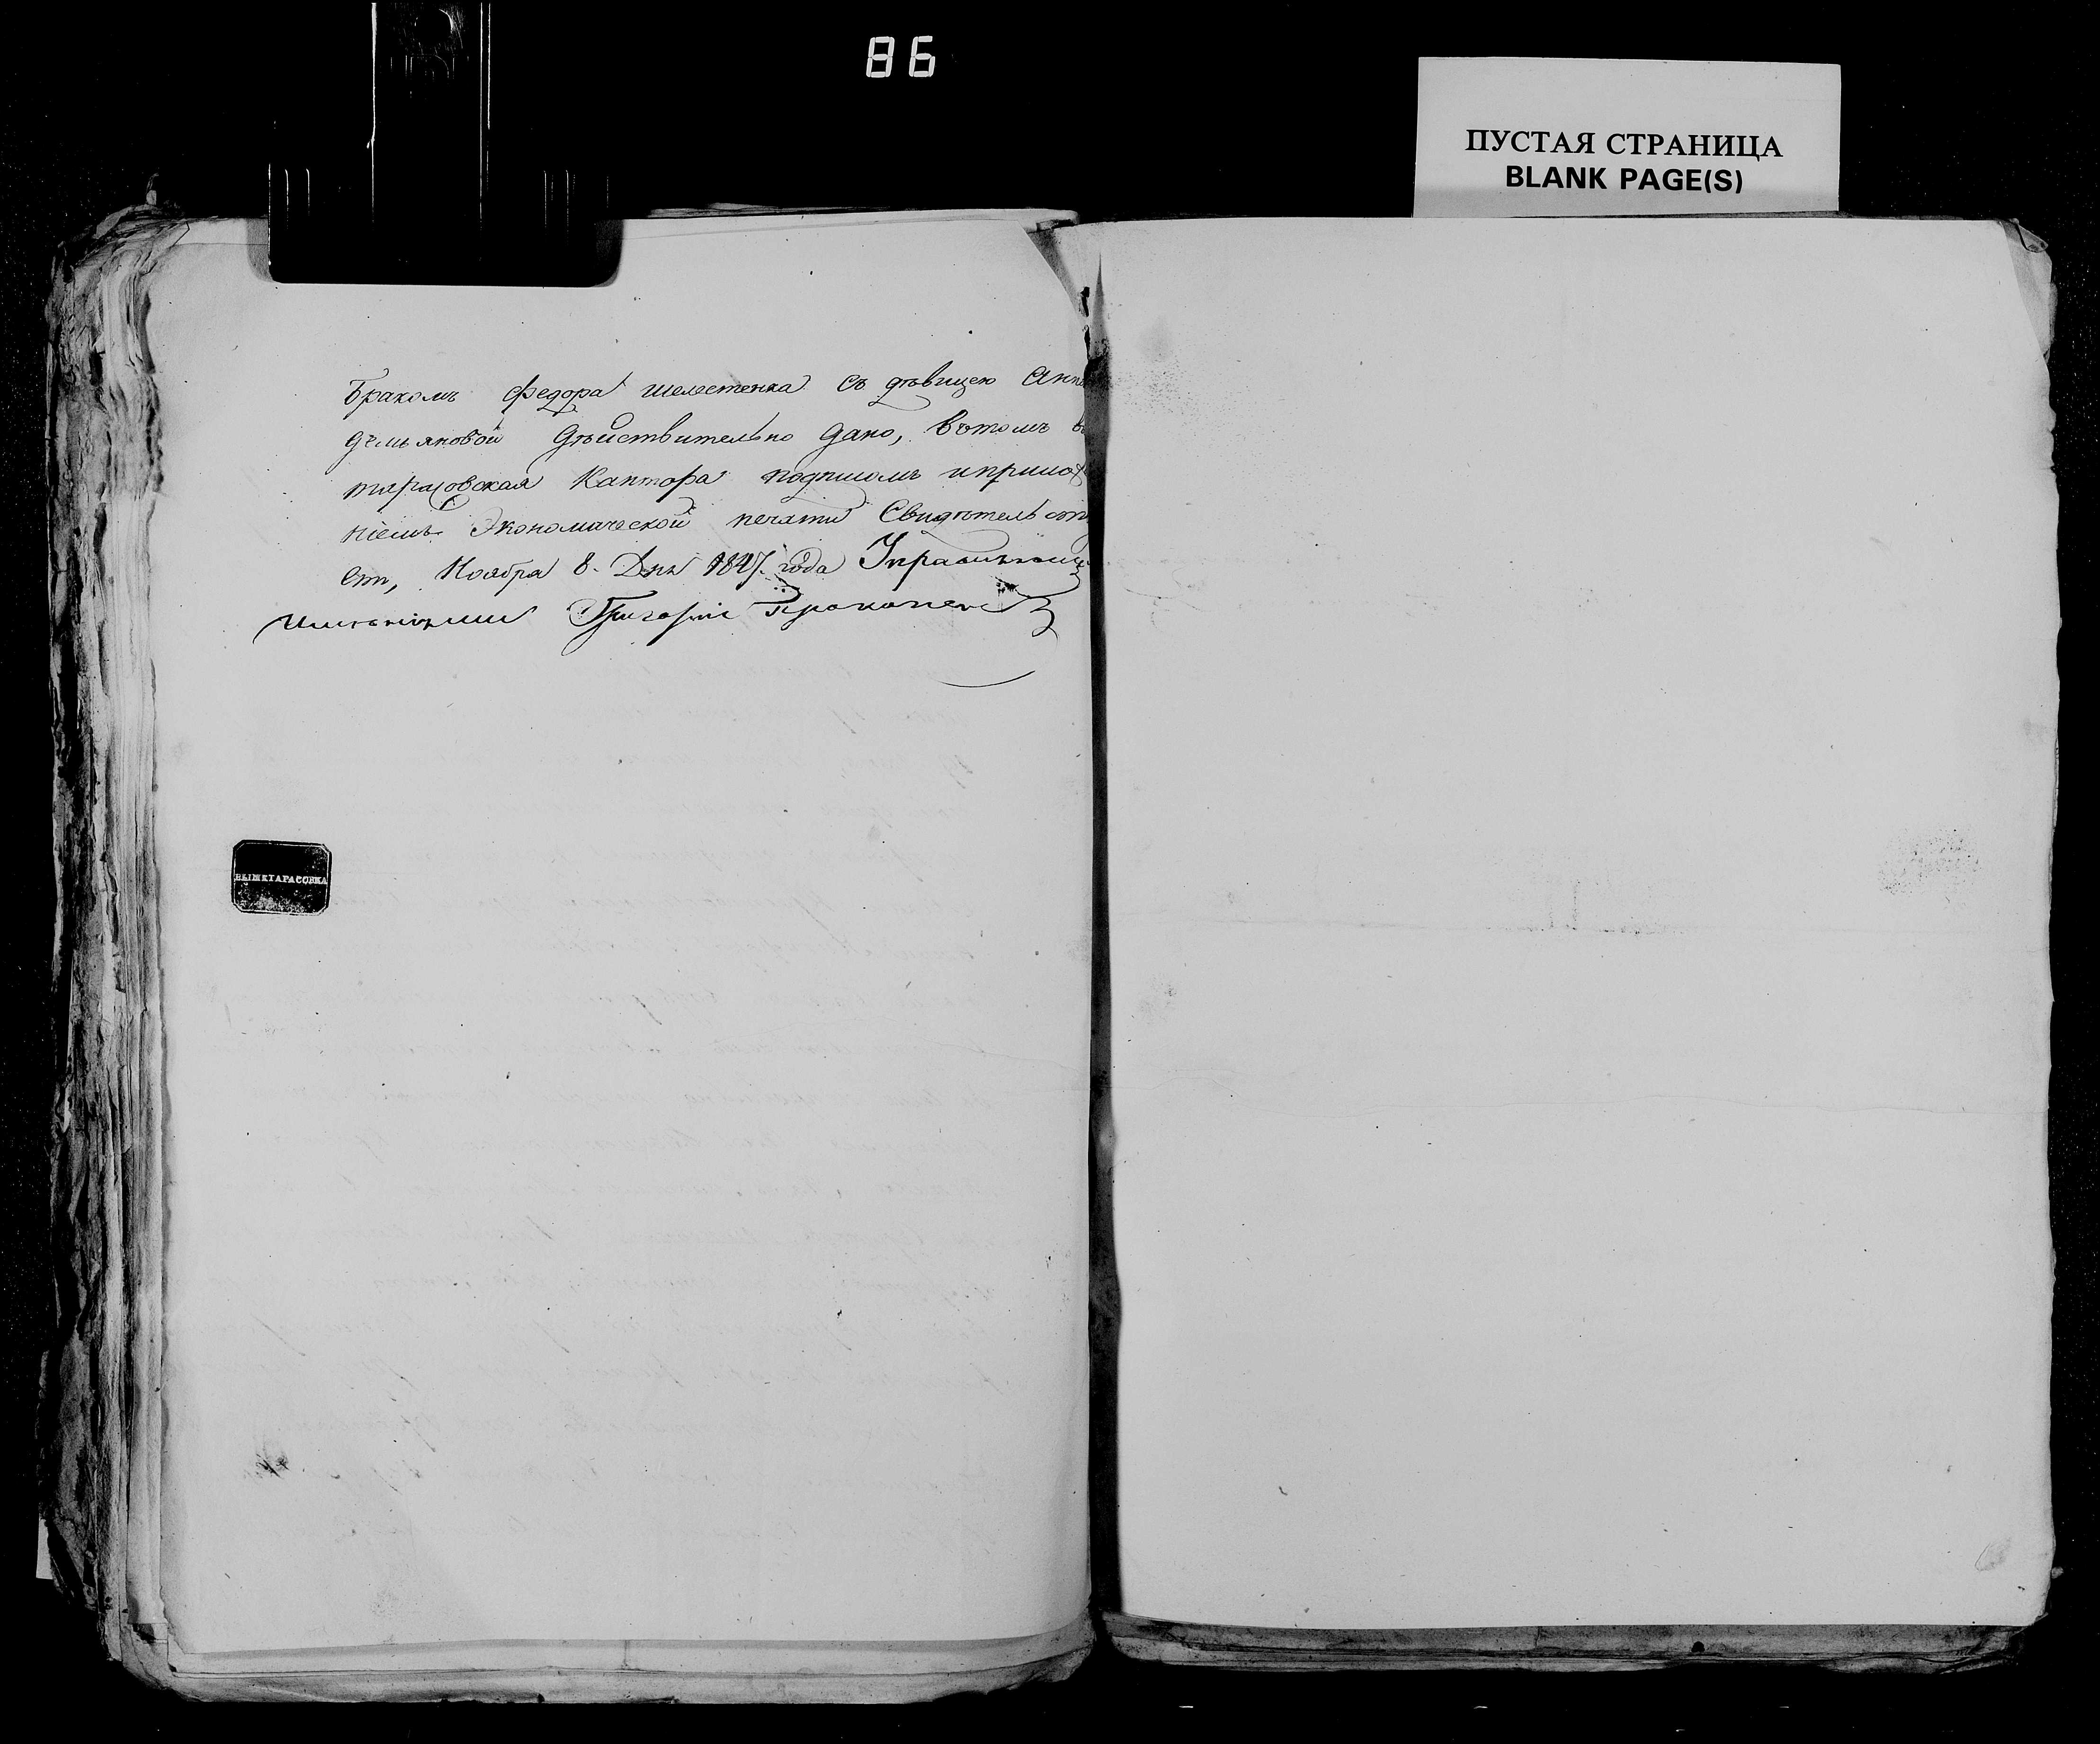 86
ПУСТАЯ СТРАНИЦА
BLANK PAGE(S)
бракомъ Федора шелестенка Съ дѣвицею Анн
демьяновой дѣйствительно дано, вътомъ
тарасовская Кантора подписомъ иприло
ніемъ Экономической печати Свидѣтельст
етъ, Ноября 8. Дня 1847. года
Григорій Прокопен